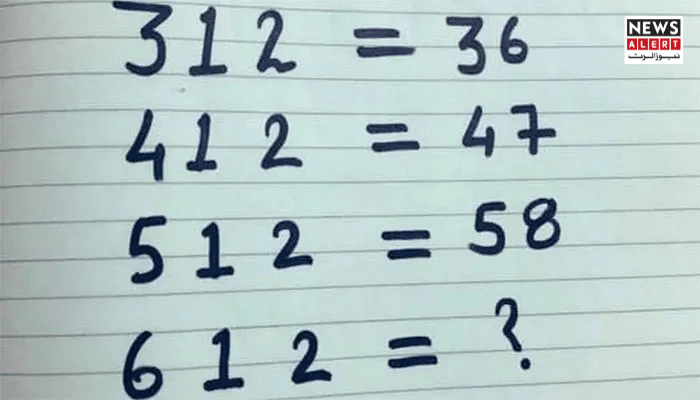 NEWS
ALERT
نیوز الرٹ
312 = 36
412 = 47
512 = 58
612 = ?